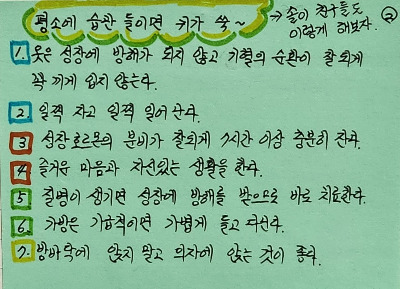 평소에 습관 들이면 키가 쑥~ → 솔이 친구들도 ②
이렇게 해보자.
1. 옷은 성장에 방해가 되지 않고 기혈의 순환이 잘되게
꽉 끼게 입지 않는다.
2. 일찍 자고 일찍 일어난다.
3 성장호르몬의 분비가 잘되게 7시간 이상 충분히 잔다.
4 즐거운 마음과 자신있는 생활을 한다.
5 질병이 생기면 성장에 방해를 받으므로 바로 치료한다.
6. 가방은 가급적이면 가볍게 들고 다닌다.
7. 방바닥에 앉지 말고 의자에 앉는 것이 좋다.